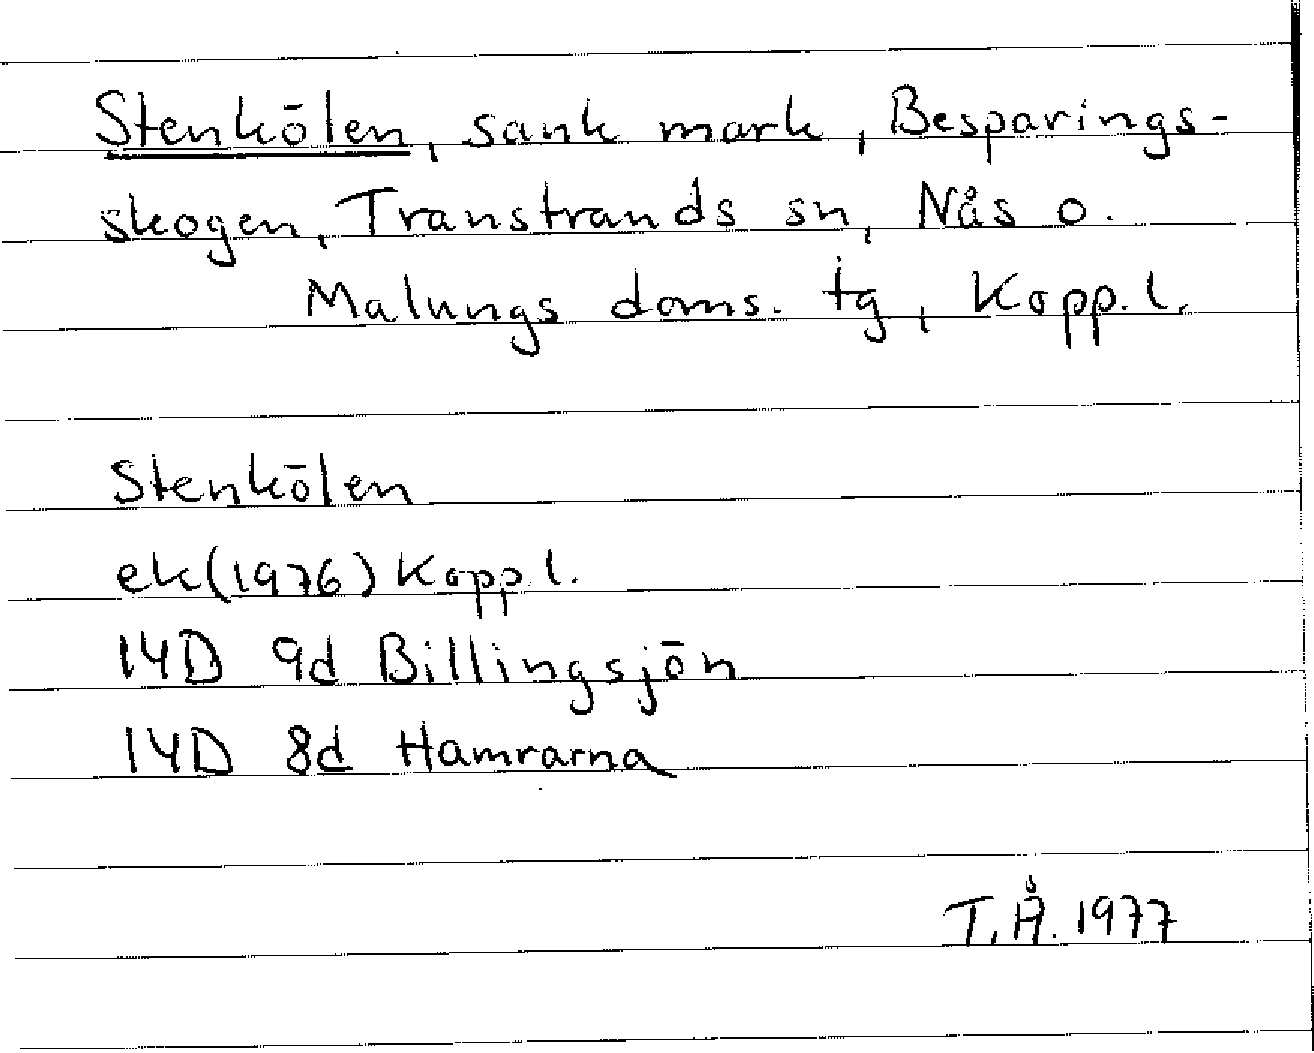 Stenkölen, sank mark, Besparings-
skogen, Transtrands sn, Nås o.
Malungs doms. tg, Kopp. l.
Stenkölen
ek (1976) Kopp l.
14D 9d Billingsjön
14D 8d Hamrarna
T.Å. 1977